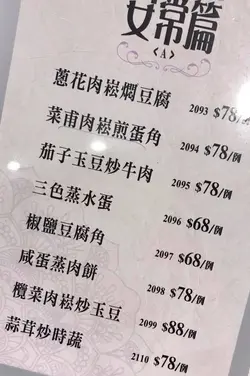 安常篇
<A>
蔥花肉崧燜豆腐 2093 $78/例
菜甫肉崧煎蛋角 2094 $78/例
茄子玉豆炒牛肉 2095 $78/例
三色蒸水蛋 2096 $68/例
椒鹽豆腐角 2097 $68/例
咸蛋蒸肉餅 2098 $78/例
欖菜肉崧炒玉豆 2099 $88/例
蒜茸炒時蔬 2110 $78/例